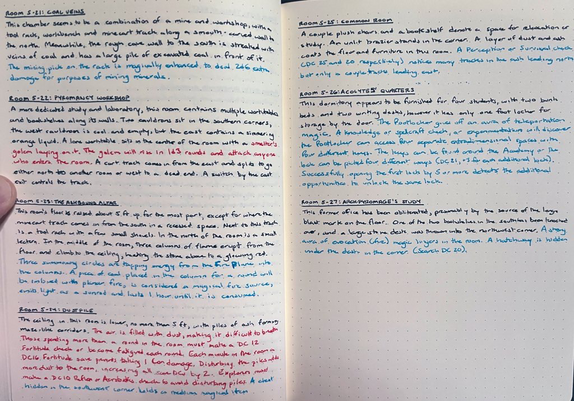 Room 5-21: Coal Veins
This chamber seems to be a combination of a mine and workshop, with a
tool rack, workbench and minecart track along a smooth-carved wall to
the north. Meanwhile, the rough cave wall to the south is streaked with
veins of coal and has a large pile of excavated coal in front of it.
The mining pick on the rack is magically enhanced to deal 2d6 extra
damage for purposes of mining minerals.
Room 5-22: Pyromancy Workshop
A more dedicated study and laboratory, this room contains multiple worktables
and bookshelves along its walls. Two cauldrons sit in the southern corners,
the west cauldron is cool and empty, but the east contains a simmering
orange liquid. A large worktable sits in the center of the room with a smelter's
golem laying on it. The golem will rise in 1d3 rounds and attack anyone
who enters the room. A cart track comes in from the east and splits to go
either north to another room or west to a dead end. A switch by the east
exit controls the track.
Room 5-23: The Blazing Altar
This room's floor is raised about 5 ft up for the most part, except for where the
minecart track comes in from the south in a recessed space. Next to this track
is a tool rack with a few small
lectern. In the middle of the room, three columns of flame erupt from the
floor and climb to the ceiling, heating the stone above to a glowing red.
Three summoning circles are tapping energy from the Fire Plane into
the columns. A piece of coal placed in the column for a round will
be imbued with planar fire, is considered a magical fire source,
emits light as a sunrod and lasts 1 hour until it is consumed.
Room 5-24: Dust Pile
The ceiling in this room is lower, no more than 5 ft, with piles of ash forming
maze-like corridors. The air is filled with dust, making it difficult to breathe
Those spending more than a round in the room must make a DC 12
Fortitude check or become fatigued each round. Each minute in the room a
DC16 Fortitude save prevents taking 1 Con damage. Disturbing the piles adds
more dust to the room, increasing all save DCs by 2. Explorers must
make a DC10 Reflex or Acrobatics check to avoid disturbing piles. A chest
hidden in the southwest corner holds a medium magical item
Room 5-25: Common Room
A couple plush chairs and a bookshelf denote a space for relaxation or
study. An unlit brazier stands in the corner. A layer of dust and ash
coats the floor and furniture in this room. A Perception or Survival check
(DC 25 and 20 respectively) notices many tracks in the ash leading north
but only a couple tracks leading east.
Room 5-26: Acolytes' Quarters
This dormitory appears to be furnished for four students, with two bunk
beds and two writing desks, however it has only one foot locker for
storage by the door. The footlocker gives off an aura of teleportation
magic. A knowledge or spellcraft check, or experimentation will discover
the footlocker can access four separate extradimensional spaces with
four different keys. The keys can be found around the Academy or the
lock can be picked four different ways (DC 21, +5 for each additional lock).
Successfully opening the first lock by 5 or more detects the additional
opportunities to unlock the same lock.
Room 5-27: Arch-Pyromage's Study
This former office has been obliterated, presumably by the source of the large
black mark on the floor. One of two bookshelves in the south has been knocked
over, and a large stone desk was thrown into the northwest corner. A strong
aura of evocation (fire) magic lingers in the room. A hatchway is hidden
under the desk in the corner (Search DC 20).